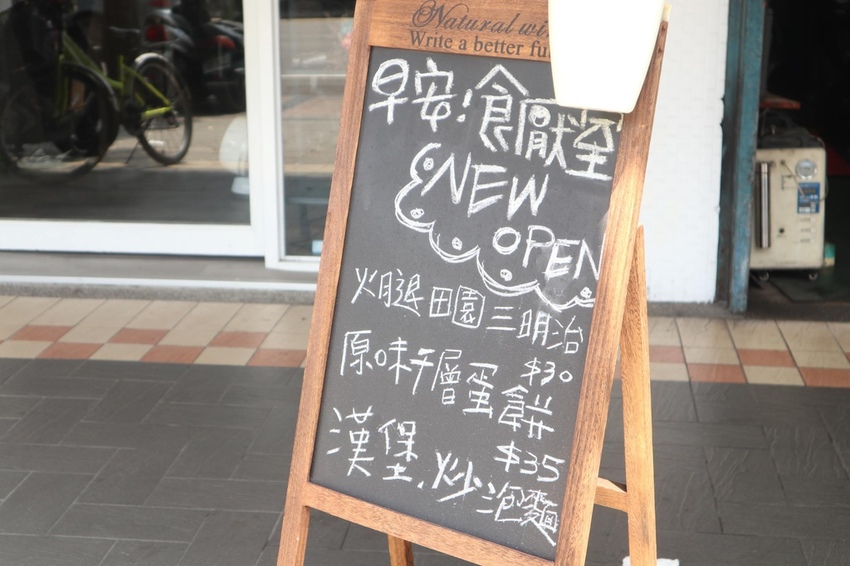 Natural wi
Write a better fu
早安!食厭堂
NEW
OPEN
火腿田園三明治
$30
原味千層蛋餅
$35
漢堡.炒泡麵